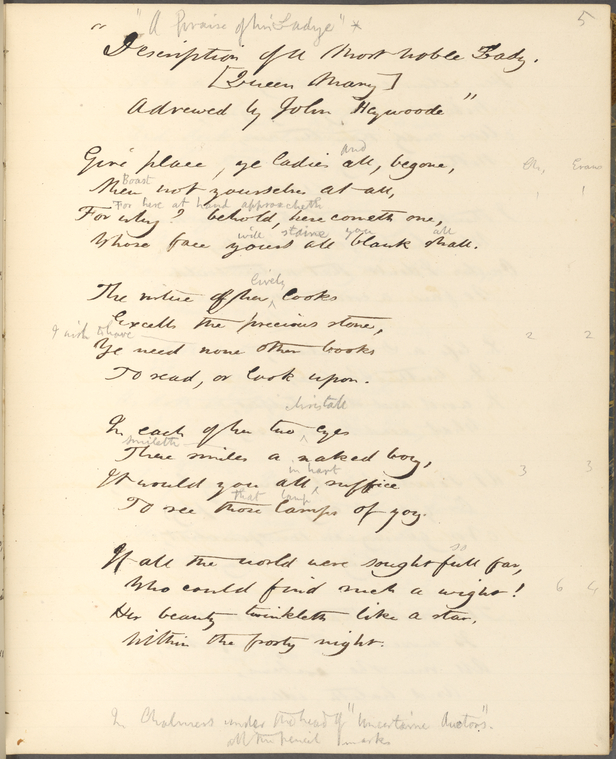 or "A Praise of his Ladye" *
5
Description of a Most noble Lady.
[Queen Mary]
Adviewed by John Heywoode"
and
Give place, ye Ladies all, begone,
Ch, Evans
Boast
Shew not yourselves at all,
1 1
For here at hand approacheth
For why? behold, here cometh one,
will staine you all
Whose face yours all blank shall.
lively
The virtue of her ^ looks
Excells the precious stone,
I wish to have
Ye need none other books
2 2
To read, or look upon.
christall
In each of her two ^ eyes
smileth
There smiles a naked boy,
in hart
It would you all ^ suffice
3 3
that lamp
To see those lamps of joy.
so
If all the world were sought full far,
Who could find such a wight!
6 4
Her beauty twinkleth like a star,
Within the frosty night.
In Chalmers under the head of "Uncertaine Auctors".
all the pencil marks